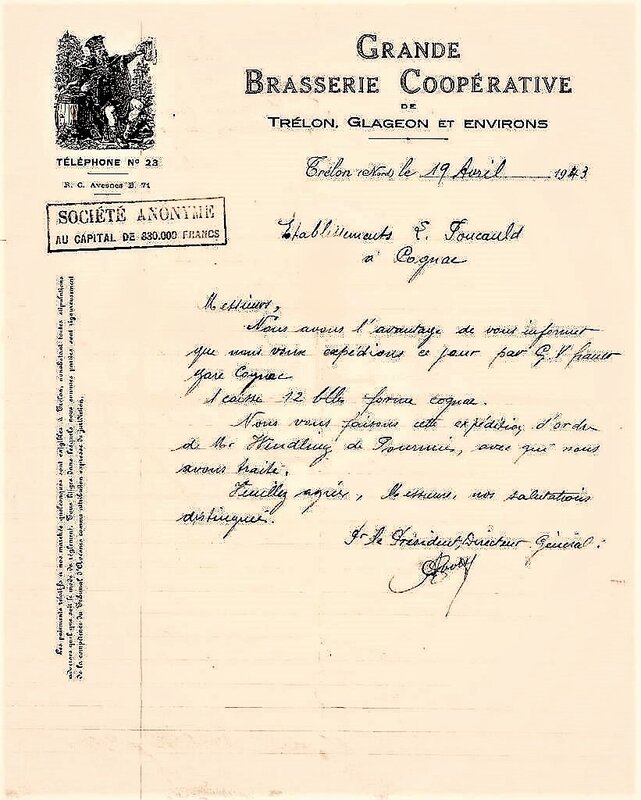 GRANDE
BRASSERIE COOPÉRATIVE
DE
TRÉLON, GLAGEON ET ENVIRONS
TÉLÉPHONE Nº 23
R. C. Avesnes B. 71
SOCIÉTÉ ANONYME
AU CAPITAL DE 830.000 FRANCS
Trélon (Nord), le 19 Avril 1943
Etablissements L. Foucauld
à Cognac
Messieurs,
Nous avons l'avantage de vous informer
que nous vous expédions ce jour par G. V. franco
gare Cognac
1 caisse 12 blles forme cognac.
Nous vous faisons cette expédition d'ordre
de Mr de Fourmies, avec qui nous
avons traité.
Veuillez agréer, Messieurs, nos salutations
distinguées.
Pr le Président, Directeur Général :
Les paiements relatifs à nos marchés quelconques sont exigibles à Trélon, nonobstant toutes stipulations
adverses quel que soit le mode de règlement. Tous litiges dans lesquels nous sommes parties sont rigoureusement
de la compétence du Tribunal d'Avesnes comme attribution expresse de juridiction.